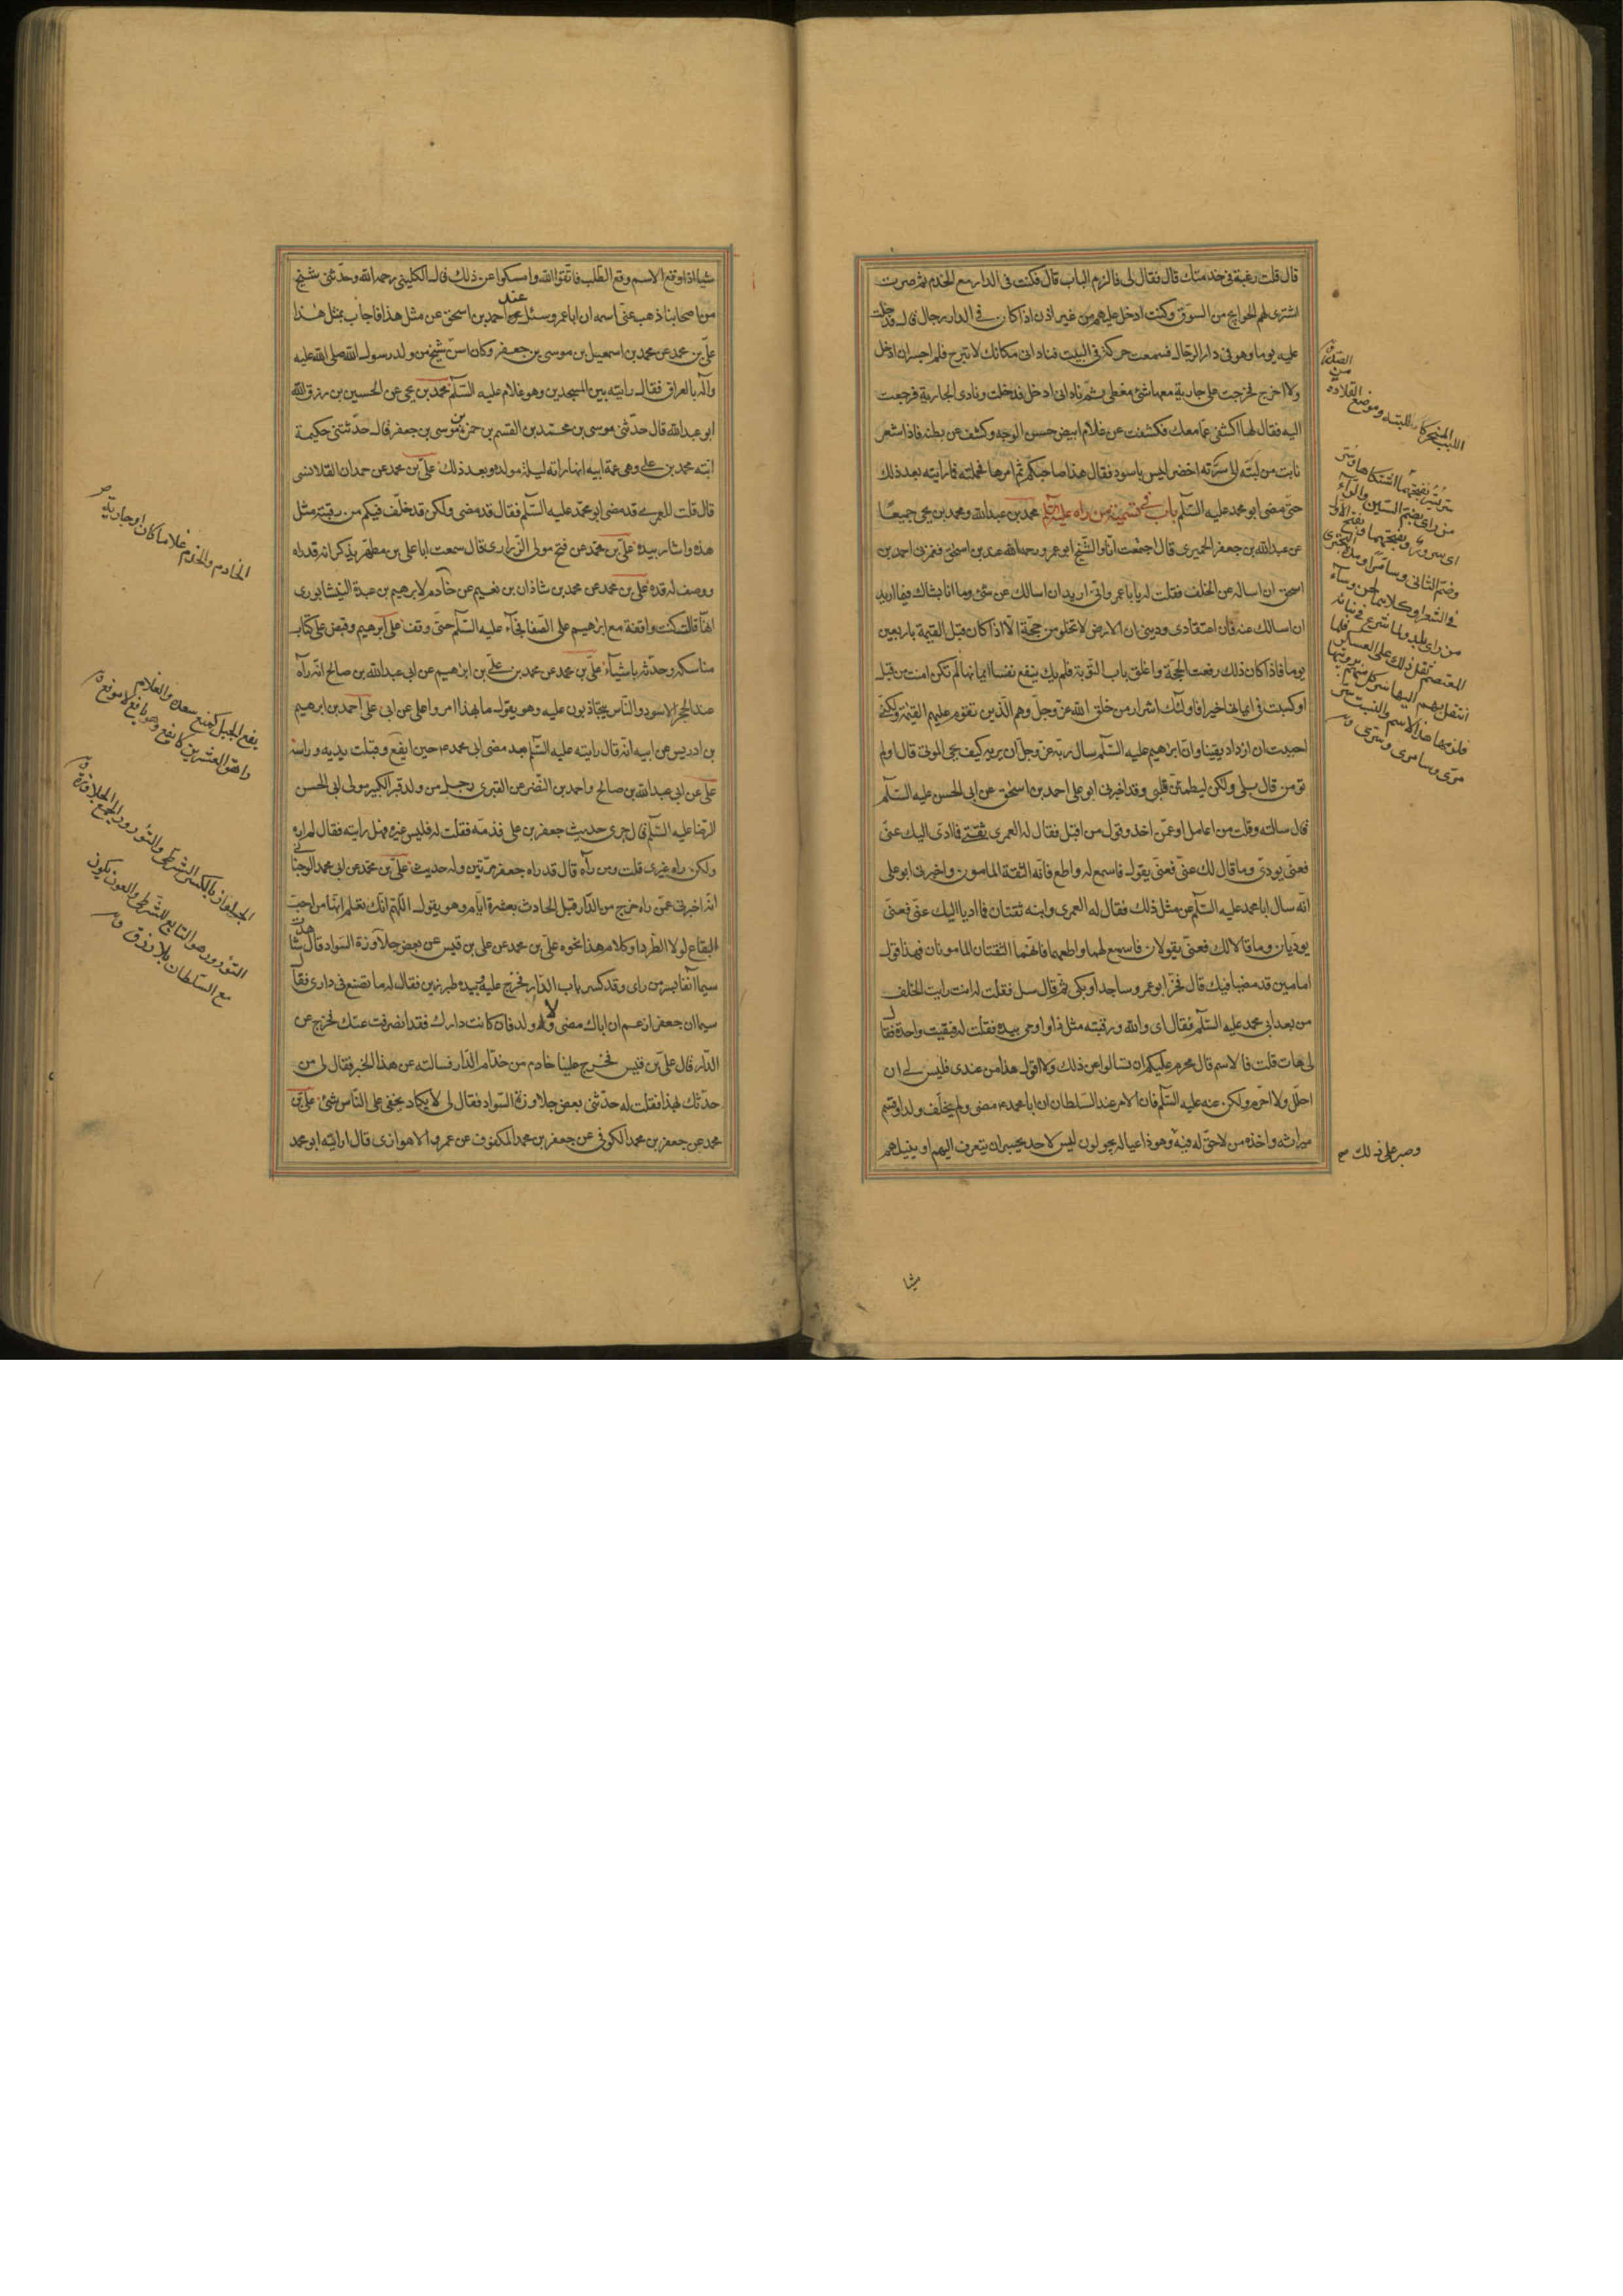 قال قلت رغبة فى خدمتك قال فقال لى فالزم الباب قال فكنت فى الدار مع الخدم ثم صرت
اشترى لهم الحوايج من السوق وكنت ادخل عليهم من غير اذن اذا كان فى الدار رجال قال فدخلت
عليه يوما وهو فى دار الرجال فسمعت حركة فى البيت فنادانى مكانك لا تبرح فلم اجسر ان ادخل
ولا اخرج فخرجت على جارية معها شئ مغطى ثم نادانى ادخل فدخلت ونادى الجارية فرجعت
اليه فقال لها اكشفى عما معك فكشفت عن غلام ابيض حسن الوجه وكشف عن بطنه فاذا شعر
نابت من لبته الى سرته اخضر ليس باسود فقال هذا صاحبكم ثم امرها فحملته فما رايته بعد ذلك
حتى مضى ابو محمد عليه السلم باب فى تسمية من راه عليه السلم محمد بن عبد الله ومحمد بن يحيى جميعا
عن عبد الله بن جعفر الحميرى قال اجتمعت انا والشيخ ابو عمرو رحمه الله عند احمد بن اسحق فغمزنى احمد بن
اسحق ان اساله عن الخلف فقلت له يا با عمرو انى اريد ان اسالك عن شئ وما انا بشاك فيما اريد
ان اسالك عنه فان اعتقادى ودينى ان الارض لا تخلو من حجة الا اذا كان قبل القيمة باربعين
يوما فاذا كان ذلك رفعت الحجة واغلق باب التوبة فلم يك ينفع نفسا ايمانها لم تكن امنت من قبل
او كسبت فى ايمانها خيرا فاولئك اشرار من خلق الله عز وجل وهم الذين تقوم عليهم القيمة ولكنى
احببت ان ازداد يقينا وان ابرهيم عليه السلم سال ربه عز وجل ان يريه كيف يحيى الموتى قال اولم
تؤمن قال بلى ولكن ليطمئن قلبى وقد اخبرنى ابو على احمد بن اسحق عن ابى الحسن عليه السلم
قال سالته وقلت من اعامل او عمن اخذ وقول من اقبل فقال له العمرى ثقتى فما ادى اليك عنى
فعنى يودى وما قال لك عنى فعنى يقول فاسمع له واطع فانه الثقة المامون واخبرنى ابو على
انه سال ابا محمد عليه السلم عن مثل ذلك فقال له العمرى وابنه ثقتان فما اديا اليك عنى فعنى
يوديان وما قالا لك فعنى يقولان فاسمع لهما واطعهما فانهما الثقتان المامونان فهذا قول
امامين قد مضيا فيك قال فخر ابو عمرو ساجدا وبكى ثم قال سل فقلت له انت رايت الخلف
من بعد ابى محمد عليه السلم فقال اى والله ورقبته مثل ذا واومى بيده فقلت له فبقيت واحدة فقال
لى هات قلت فالاسم قال محرم عليكم ان تسالوا عن ذلك ولا اقول هذا من عندى فليس لى ان
احلل ولا احرم ولكن عنه عليه السلم فان الامر عند السلطان ان ابا محمد مضى ولم يخلف ولدا وقسم
ميراثه واخذه من لا حق له فيه وهو ذا عياله يجولون ليس لاحد يجسر ان يتعرف اليهم او ينيلهم
وصبر على ذلك صح
شيا
شيا اذا وقع الاسم وقع الطلب فاتقوا الله وامسكوا عن ذلك قال الكلينى رحمه الله وحدثنى شيخ
من اصحابنا ذهب عنى اسمه ان ابا عمرو سئل عند احمد بن اسحق عن مثل هذا فاجاب بمثل هذا
على بن محمد عن محمد بن اسمعيل بن موسى بن جعفر وكان اسن شيخ من ولد رسول الله صلى الله عليه
واله بالعراق فقال رايته بين المسجدين وهو غلام عليه السلم محمد بن يحيى عن الحسين بن رزق الله
ابو عبد الله قال حدثنى موسى بن محمد بن القسم بن حمزة بن موسى بن جعفر قال حدثتنى حكيمة
ابنة محمد بن على وهى عمة ابيه انها راته ليلة مولده وبعد ذلك على بن محمد عن حمدان القلانسى
قال قلت للعمرى قد مضى ابو محمد عليه السلم فقال قد مضى ولكن قد خلف فيكم من رقبته مثل
هذه واشار بيده على بن محمد عن فتح مولى الزرارى قال سمعت ابا على بن مطهر يذكر انه قد راه
ووصف له قده على بن محمد عن محمد بن شاذان بن نعيم عن خادم لابرهيم بن عبدة النيشابورى
انها قالت كنت واقفة مع ابرهيم على الصفا فجآء عليه السلم حتى وقف على ابرهيم وقبض على كتاب
مناسكه وحدثه باشيآء على بن محمد عن محمد بن على بن ابرهيم عن ابى عبد الله بن صالح انه راه
عند الحجر الاسود والناس يتجاذبون عليه وهو يقول ما بهذا امروا على عن ابى على احمد بن ابرهيم
بن ادريس عن ابيه انه قال رايته عليه السلم بعد مضى ابى محمد حين ايفع وقبلت يديه وراسه
على عن ابى عبد الله بن صالح واحمد بن النضر عن القنبرى رجل من ولد قنبر الكبير مولى ابى الحسن
الرضا عليه السلم قال جرى حديث جعفر بن على فذمه فقلت له فليس غيره فهل رايته فقال لم اره
ولكن راه غيرى قلت ومن راه قال قد راه جعفر مرتين وله حديث على بن محمد عن ابى محمد الوجنانى
انه اخبرنى عمن راه خرج من الدار قبل الحادث بعشرة ايام وهو يقول اللهم انك تعلم انها من احب
البقاع لولا الطرد او كلام هذا نحوه على بن محمد عن على بن قيس عن بعض جلاوزة السواد قال شاهدت
سيما آنفا بسر من راى وقد كسر باب الدار فخرج عليه وبيده طبرزين فقال له ما تصنع فى دارى فقال
سيما ان جعفرا زعم ان اباك مضى ولا ولد له فان كانت دارك فقد انصرفت عنك فخرج عن
الدار قال على بن قيس فخرج علينا خادم من خدام الدار فسالته عن هذا الخبر فقال لى من
حدثك بهذا فقلت له حدثنى بعض جلاوزة السواد فقال لى لا يكاد يخفى على الناس شئ على بن
محمد عن جعفر بن محمد الكوفى عن جعفر بن محمد المكفوف عن عمرو الاهوازى قال ارانيه ابو محمد
الخادم والخدم غلاما كان او جارية
يفع الجبل كمنع صعده والغلام
راهق العشرين كايفع وهو يافع لا موفع
الجلواز بالكسر الشرطى والتؤرور الجمع الجلاوزة
التؤرور هو التابع للشرطى والعون يكون
مع السلطان بلا رزق